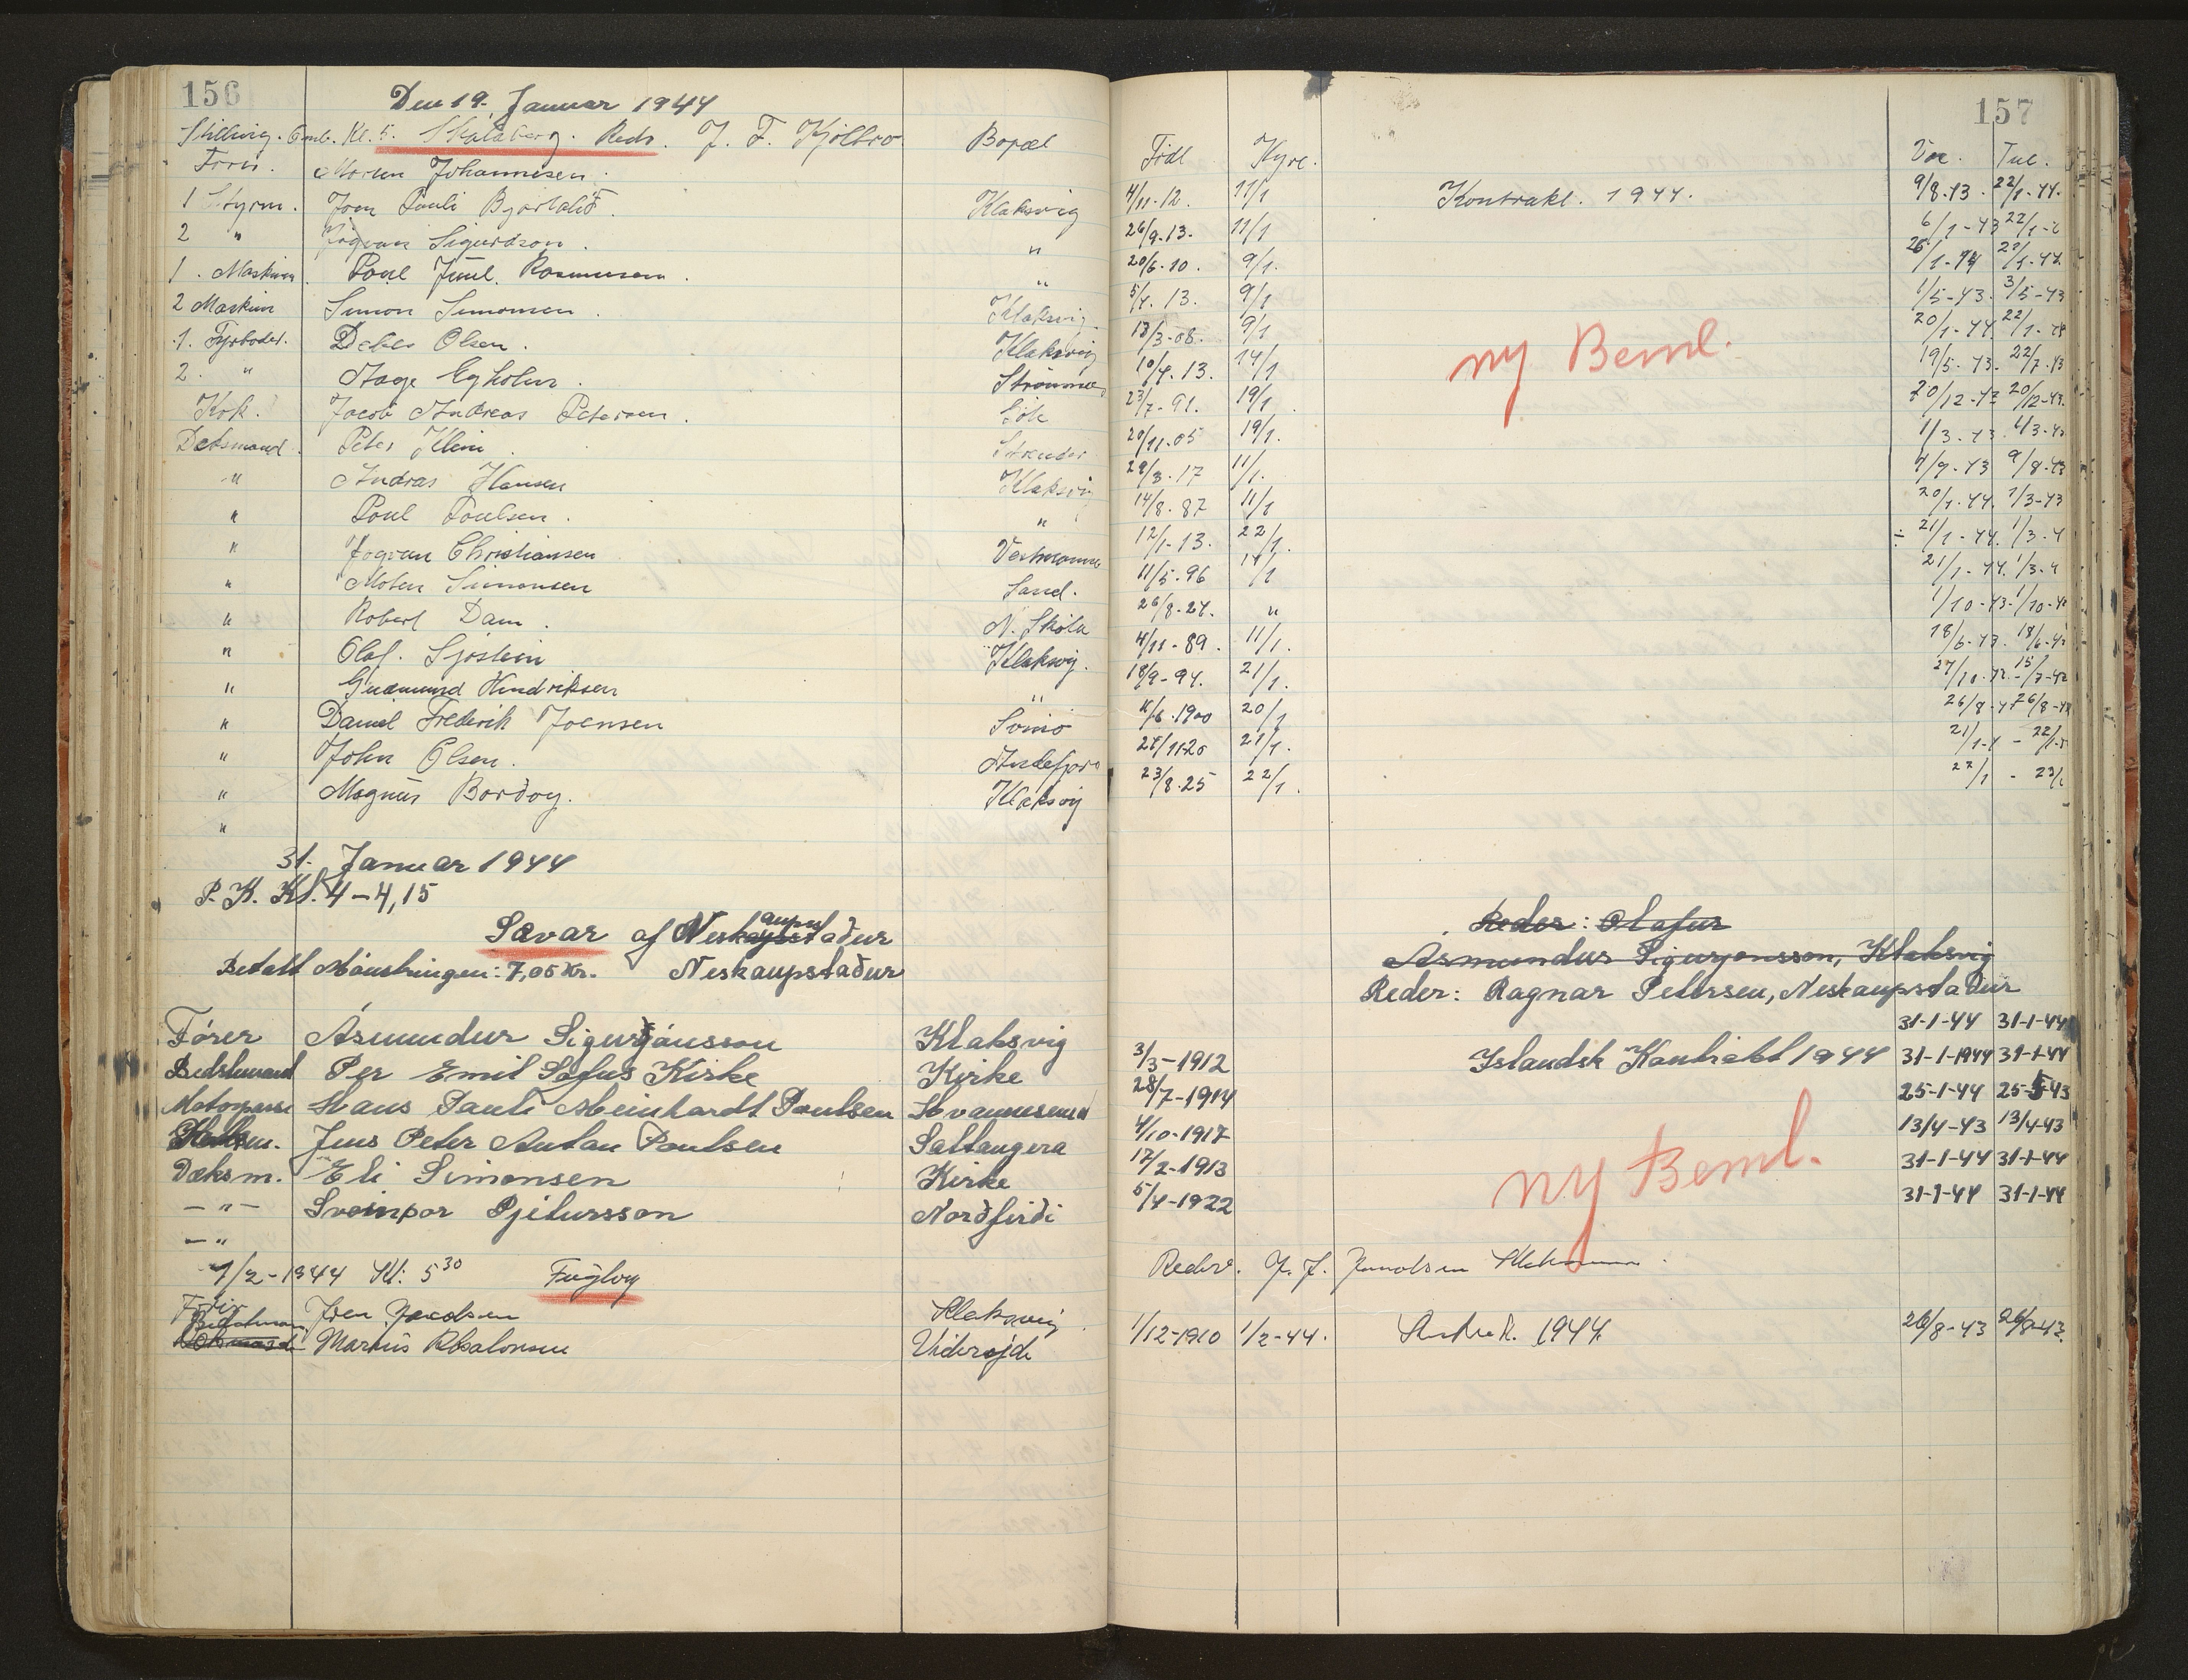 156
Den 19. Januar 1944
Stilling. Omb. Kl. 5. Skálaberg. Redr. J. F. Kjölbro Bopæl
Förer. Morten Johannesen.
1 Styrm. Joen Pauli Bjartalid. Klaksvig
2 " Jógvan Sigurdson. "
1. Maskinm. Poul Juul. Rasmussen. "
2 Maskinm Simon Simonsen. Klaksvig.
1. Fyrböder. Debes Olsen. Klaksvig
2. " Aage Egholm. Strömnæs
Kok. Jacob Andreas Petersen.
Deksmand. Peter Klein.
" Andras Hansen Klaksvig
" Poul Poulsen. "
" Jogvan Christiansen Vestmanna
" Simonsen Sand.
" Robert Dam. N. Skola
" Olaf. Sjostein Klaksvig.
" Gudmund Hendriksen "
" Daniel Frederik Joensen
" John Olsen. Andefjord
" Magnus Bordoy. Klaksvig
"
31. Januar 1944
P. K. Kl. 4 - 4,15
Sævar af Neskaupstadur
Betalt Mönstringen: 7,05 Kr. Neskaupstadur
Förer Ásmundur Sigurjónsson Klaksvig
Bedstemand Per Emil Sofus Kirke Kirke
Motorpasser Hans Pauli Meinhardt Poulsen Hvannesund
Jens Peter Anton Poulsen Saltangerá
Dæksm. Eli Simonsen Kirke
- " - Sveinpor Pjetursson Nordfirdi
- "
1/2 - 1944 Kl: 5 30 Fugloy
Förer Joen Jacobsen Klaksvig.
Bedstemand Markus Absalonsen Videröjde
157
Födt Hyre. Von. Tul.
4/11-12. 11/1 Kontrakt. 1944. 9/8-43 22/1-44.
26/9-13. 11/1 6/1-43
20/6-10. 9/1. 26/1-44 22/1-44
5/4. 13. 9/1 1/5-43. 3/5-43
13/3-08. 9/1 20/1-44
ny Beml.
10/4. 13. 14/1 19/5-43. 22/7-43
23/7-91. 19/1. 20/12-43 20/12-43.
20/11-05 19/1. 1/3-43.
29/3-17 11/1. 9/8-43
14/8-87 11/1 20/1-44. 1/3-43
12/1-13. 22/1. ÷ 21/1-44. 1/3-4
11/5-96 14/1 21/1-44. 1/3-4
26/8-24. " 1/10-43.
4/11-89. 11/1. 18/6-43.
18/9-94. 21/1.
1900 20/1 26/8
11-20 21/1. 21/1
23/8-25 22/1. 22/1
Reder: Olafur
Asmundur Sigurjonsson, Klaksvig
Reder: Ragnar Petersen, Neskaupstadur
31-1-44 31-1-44
3/3-1912 Islandsk Kontrakt 1944 31-1-1944 31-1-44
28/7-1914 25-1-44 25-5-43
4/10-1917 13/4-43 13/4-43
17/2-1913 ny Beml. 31-1-44 31-1-44
5/4-1922 31-1-44 31-1-44
Reder. J. F.
1/12-1910 1/2-44. 1944. 26/8-43 26/8-43.